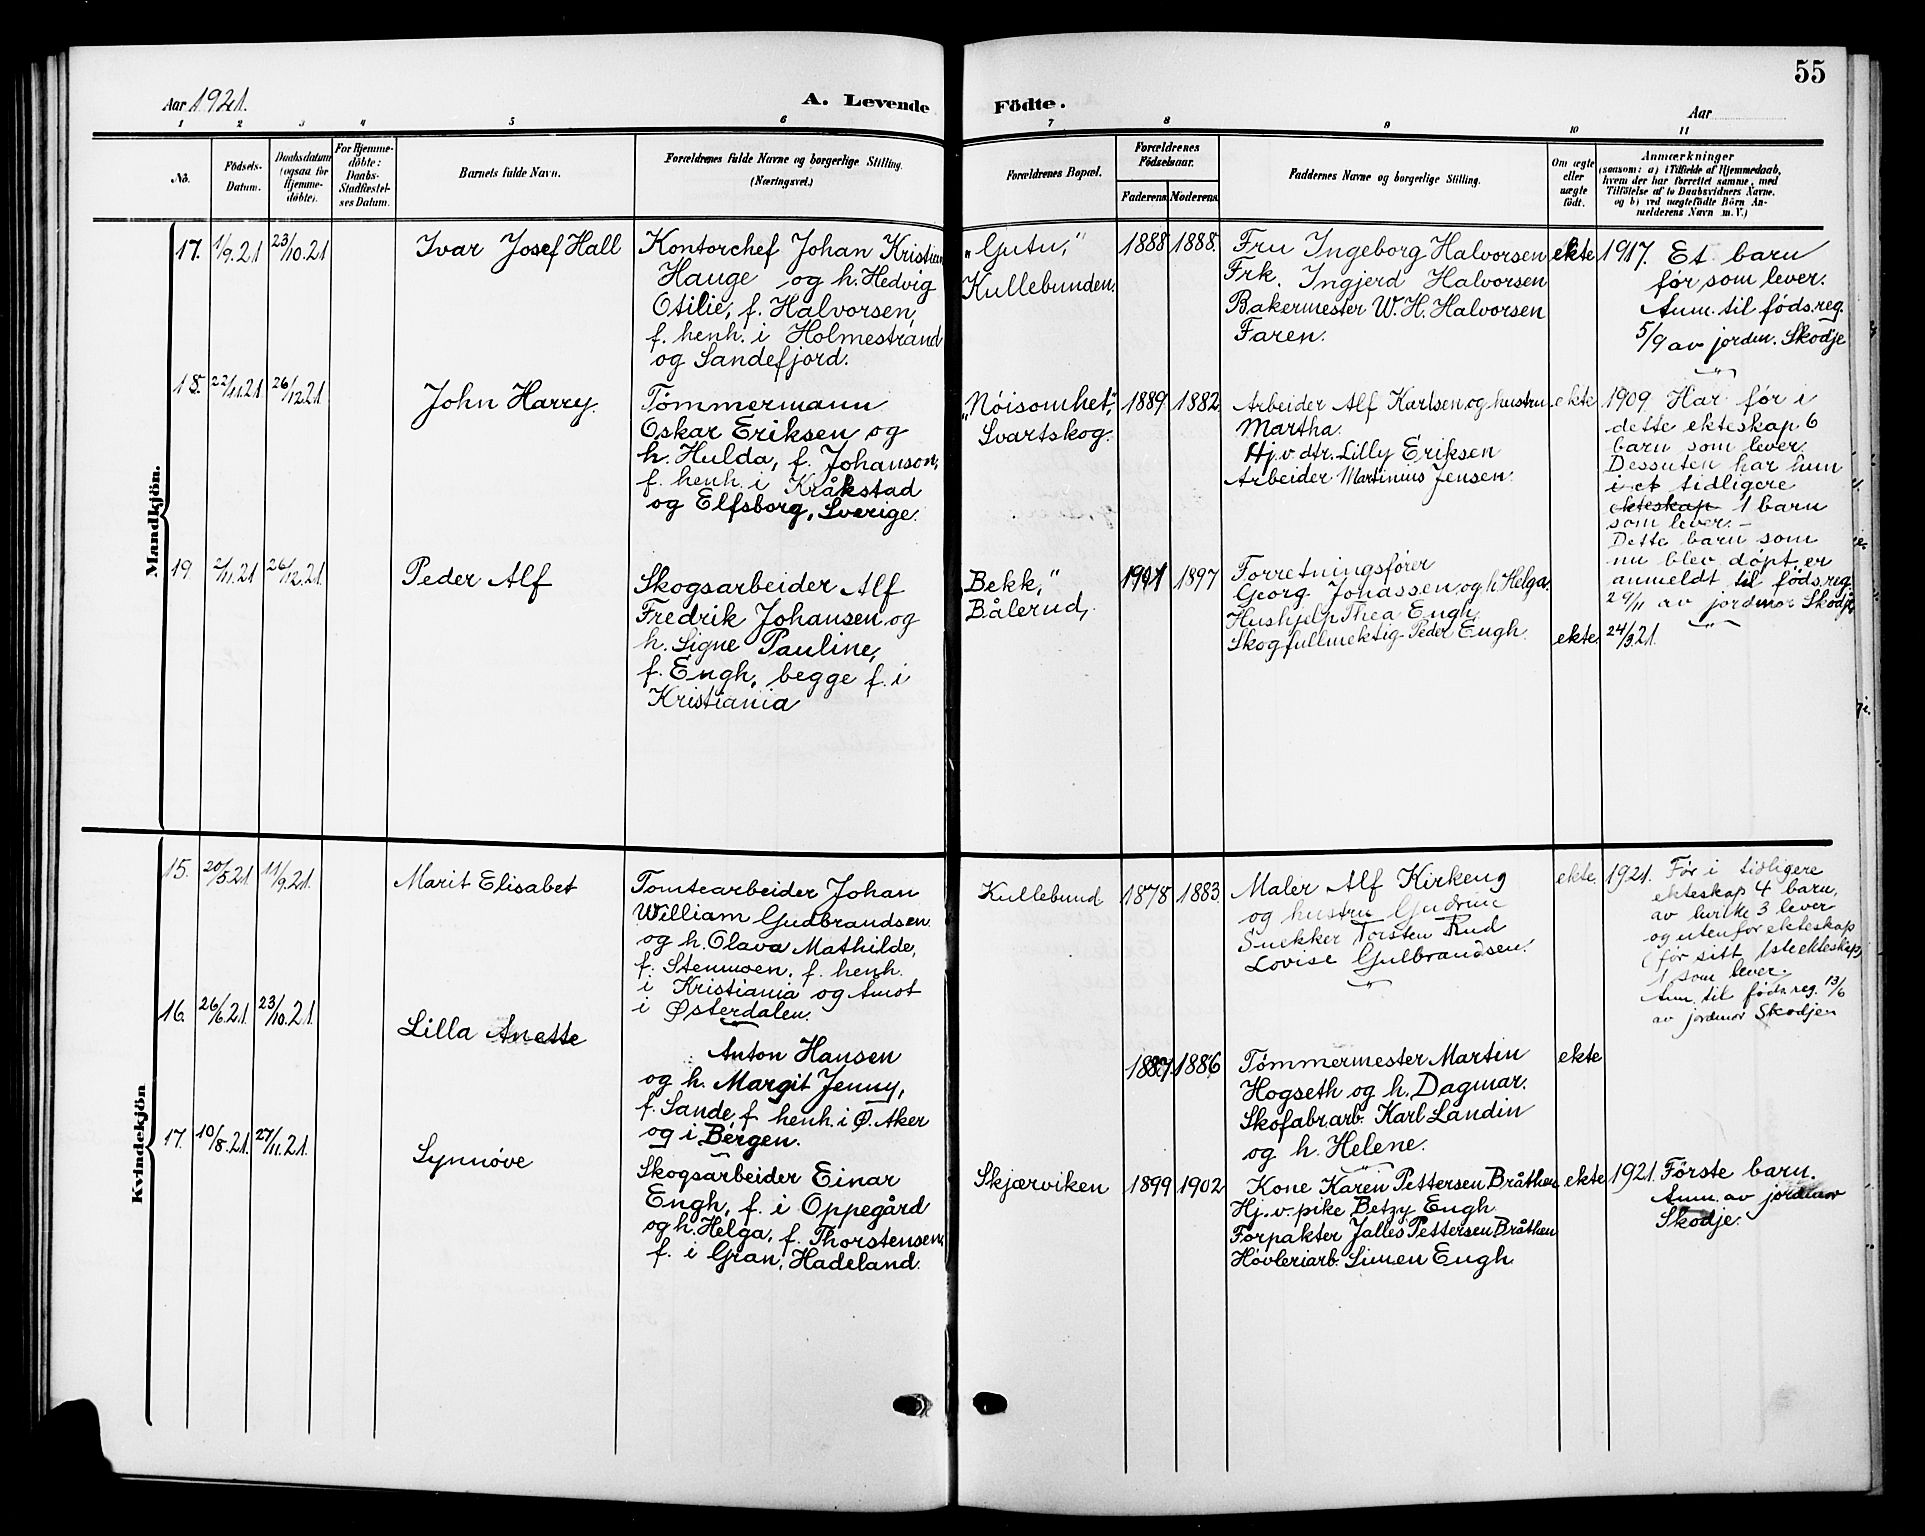 55
Aar 1921.
A. Levende
Födte.
Aar
1 2 3 4 5 6 7 8 9 10 11
No.
Födsels-
Datum.
Daabsdatum
(ogsaa for
Hjemme-
döbte).
For Hjemme-
döbte:
Daabs-
Stadfæstel-
ses Datum.
Barnets fulde Navn.
Forældrenes fulde Navne og borgerlige Stilling.
(Næringsvei.)
Forældrenes Bopæl.
Forældrenes
Födselsaar.
Faderens. Moderens.
Faddernes Navne og borgerlige Stilling.
Om ægte
eller
uægte
födt.
Anmærkninger
(saasom: a) i Tilfælde af Hjemmedaab,
hvem der har forrettet samme, med
Tilföielse af to Daabsvidners Navne,
og b) ved uægtefödte Börn An-
melderens Navn m. V.)
Mandkjön.
17. 1/9.21 23/10.21 Ivar Josef Hall
Kontorchef Johan Kristian
Hauge og h. Hedvig
Otilie, f. Halvorsen,
f. henh. i Holmestrand
og Sandefjord.
"Gutu,"
Kullebunden.
1888 1888.
Fru Ingeborg Halvorsen
Frk. Ingjerd Halvorsen
Bakermester W. H. Halvorsen
Faren.
ekte
1917. Et barn
før som lever.
Anm. til føds.reg.
5/9 av jordm. Skodje
18. 22/11.21 26/12.21 John Harry.
Tømmermann
Oskar Eriksen og
h. Hulda, f. Johanson,
f. henh. i Kråkstad
og Elfsborg, Sverige.
"Nöisomhet,"
Svartskog.
1889 1882
Arbeider Alf Karlsen og hustru
Martha.
Hj.v.dtr. Lilly Eriksen
Arbeider Martinius Jensen.
ekte
1909 Har før i
dette ekteskap 6
barn som lever.
Dessuten har hun
i et tidligere
ekteskap 1 barn
som lever. –
Dette barn som
nu blev döpt, er
anmeldt til føds.reg.
29/11 av jordmor Skodje
19 2/11.21 26/12.21 Peder Alf
Skogsarbeider Alf
Fredrik Johansen og
h. Signe Pauline,
f. Engh, begge f. i
Kristiania
"Bekk,"
Bålerud,
1901 1897
Forretningsfører
Georg Jonassen, og h. Helga.
Hushjelp Thea Engh
Skogfullmektig Peder Engh.
ekte 24/3.21.
Kvindekjön
15. 20/5.21 11/9.21. Marit Elisabet
Tomtearbeider Johan
William Gudbrandsen
og h. Olava Mathilde,
f. Stenmoen, f. henh.
i Kristiania og Åmot
i Østerdalen.
Kullebund 1878 1883.
Maler Alf Kirkeng
og hustru Gudrun
Snekker Torsten Rud
Lovise Gulbrandsen.
ekte. 1921. Før i tidligere
ekteskap 4 barn,
av hvilke 3 lever
og utenfor ekteskap
(før sitt 1ste ekteskap)
1 som lever.
Anm. til føds.reg. 13/6
av jordmor Skodjen
16. 26/6.21. 23/10.21. Lilla Anette
Anton Hansen
og h. Margit Jenny,
f. Sande, f. henh. i Ø. Aker
og i Bergen.
1887. 1886
Tømmermester Martin
Hogseth og h. Dagmar.
Skofabr.arb. Karl Landin
og h. Helene.
ekte
17. 10/8.21. 27/11.21. Synnøve
Skogsarbeider Einar
Engh, f. i Oppegård
og h. Helga, f. Thorstensen,
f. i Gran, Hadeland.
Skjærviken 1899 1902
Kone Karen Pettersen Bråthen
Hj. v. pike Betzy Engh.
Forpakter Jalles Pettersen Bråthen
Høvleriarb. Simen Engh
ekte 1921. Første barn.
Anm. av jordmor
Skodje.